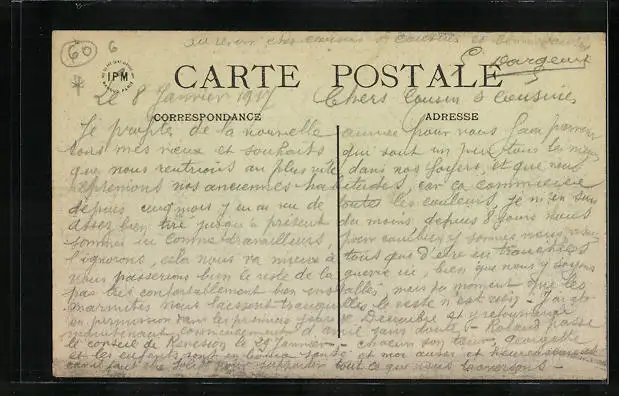 au revoir chers cousins et cousines et
60
6
IPM
CARTE POSTALE
Le 8 Janvier 1917 Chers Cousin & Cousine,
CORRESPONDANCE
ADRESSE
Je profite de la nouvelle année pour vous faire parvenir
tous mes vœux et souhaits qui sont un peu tous les mêmes
que nous rentrions au plus vite dans nos foyers, et que nous
reprenions nos anciennes habitudes, car ça commence
depuis cinq mois j'en ai vu de toutes les couleurs, je m'en suis
assez bien tiré jusqu'à présent du moins depuis 8 jours nous
sommes ici comme travailleurs, pour combien y sommes nous, nous
l'ignorons, cela nous va mieux à tous que d'être en tranchées
nous passerions bien le reste de la guerre ici, bien que nous y soyons
pas très confortablement bien installés, mais du moment que les
marmites nous laissent tranquilles, le reste n'est rien. J'ai été
en permission dans les premiers jours de Décembre et y retournerai
commencement d'avril sans doute. Roland passe
le conseil de Revision le 29 Janvier. chacun son tour. Georgette
et les enfants sont en bonne santé et moi aussi et heureusement
car il faut être solide pour supporter tout ce que nous